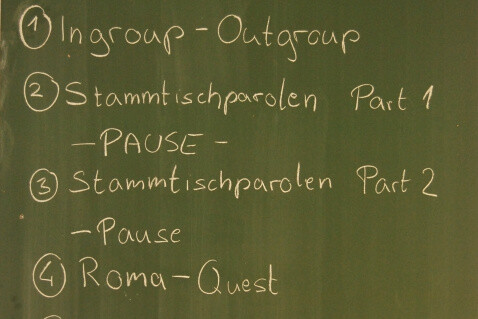 ① Ingroup - Outgroup
② Stammtischparolen Part 1
- PAUSE -
③ Stammtischparolen Part 2
- Pause
④ Roma - Quest